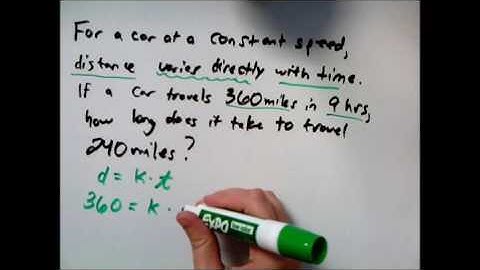 For a car at a constant speed,
distance varies directly with time.
If a car travels 360 miles in 9 hrs,
how long does it take to travel
240 miles?
d = k · t
360 = k ·
EXPO